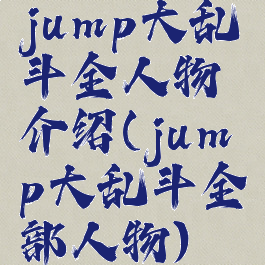 jump大乱
斗全人物
介绍(jum
p大乱斗全
部人物)